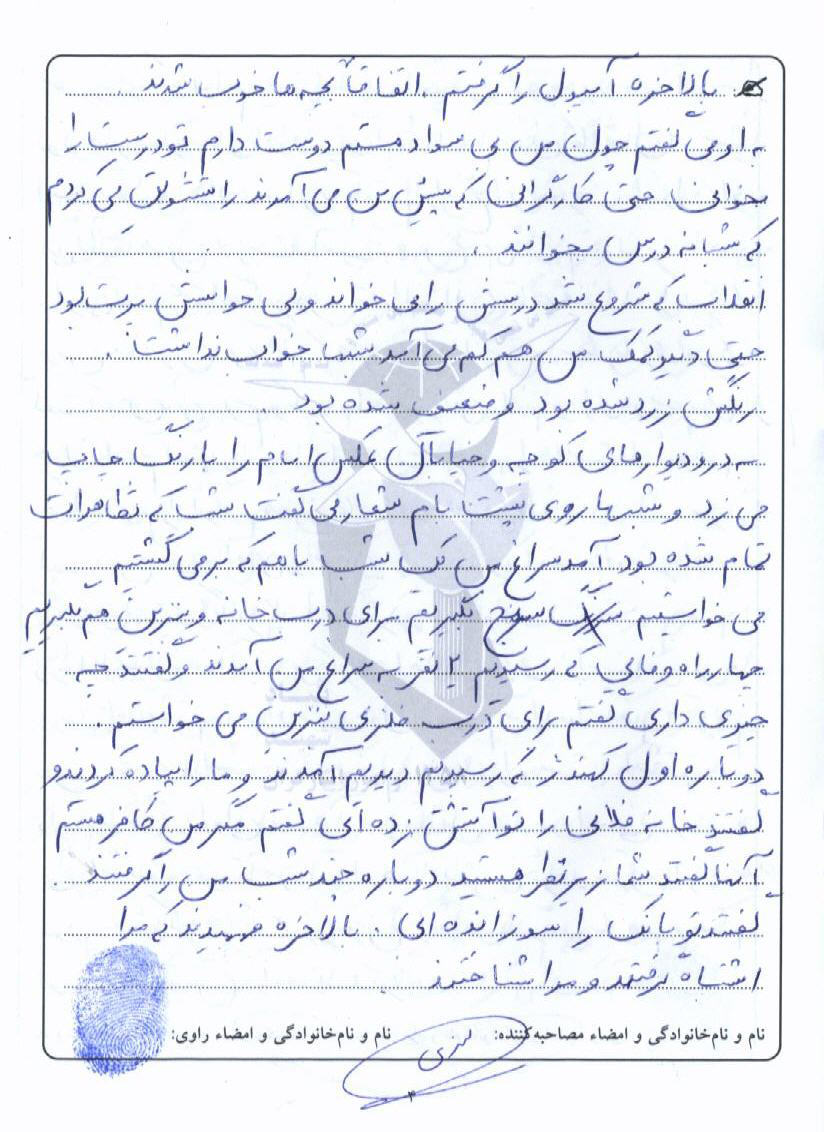 بالاخره آمپول را گرفتم . اتفاقاً بچه ها خوب شدند .
به او می گفتم چون من بی سواد هستم دوست دارم تو درست را
بخوانی حتی کارگرانی که پیش من می آمدند را تشویق می کردم
که شبانه درس بخوانند .
انقلاب که شروع شد درسش را می خواند ولی حواسش پرت بود
حتی دیگر کمک من هم کم می آمد شبها خواب نداشت .
رنگش زرد شده بود و ضعیف شده بود .
به در و دیوارهای کوچه و خیابان عکس امام را با رنگ چاپ
می زد و شبها روی پشت بام شعار می گفت شب که تظاهرات
تمام شده بود آمد سراغ من یک شب با هم که برمی گشتیم
می خواستیم بگیریم برای درب خانه و بنزین هم بگیریم
چهار راه وفایی که رسیدیم ۲ نفر به سراغ من آمدند و گفتند چه
چیزی داری گفتم برای درب فلزی بنزین می خواستم .
دوباره اول کهندژ که رسیدیم دیدیم آمدند و ما را پیاده کردند و
گفتند خانه فلانی را تو آتش زده ای گفتم مگر من کافر هستم
آنها گفتند شما زیر نظر هستید دوباره چند شب من را گرفتند .
گفتند تو بانک را سوزانده ای . بالاخره فهمیدند که مرا
اشتباه گرفتند و مرا شناختند
نام و نام‌خانوادگی و امضاء مصاحبه‌کننده: نام و نام‌خانوادگی و امضاء راوی:
۴